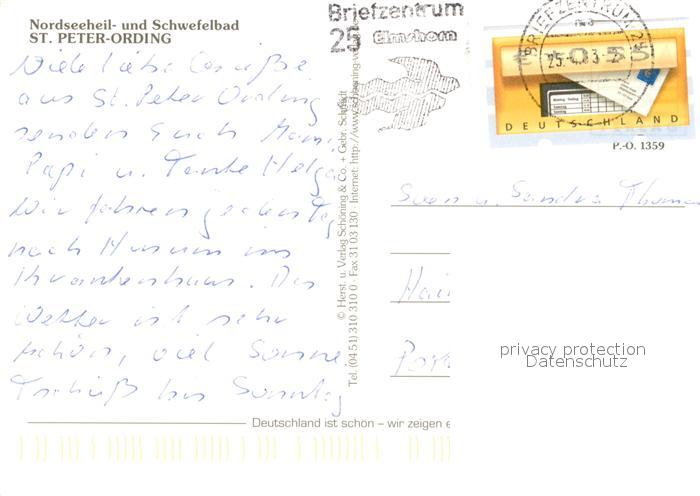 Nordseeheil- und Schwefelbad
ST. PETER-ORDING
Viele liebe Grüße
aus St. Peter Ording
senden Euch Mami,
Papi u. Tante Helga
Wir fahren jeden Tag
nach Husum ins
Krankenhaus. Das
Wetter ist sehr
schön, viel Sonne
Tschüß bis Sonntag
Deutschland ist schön – wir zeigen e
© Herst. u. Verlag Schöning & Co. + Gebr. Schmidt
Tel. (04 51) 310 310 0 · Fax 31 03 130 · Internet: http://www.schoening-ve
Briefzentrum
25 Elmshorn
BRIEFZENTRUM 25
DEUTSCHLAND
P.-O. 1359
Sven u. Sandra Thomas
privacy protection
Datenschutz